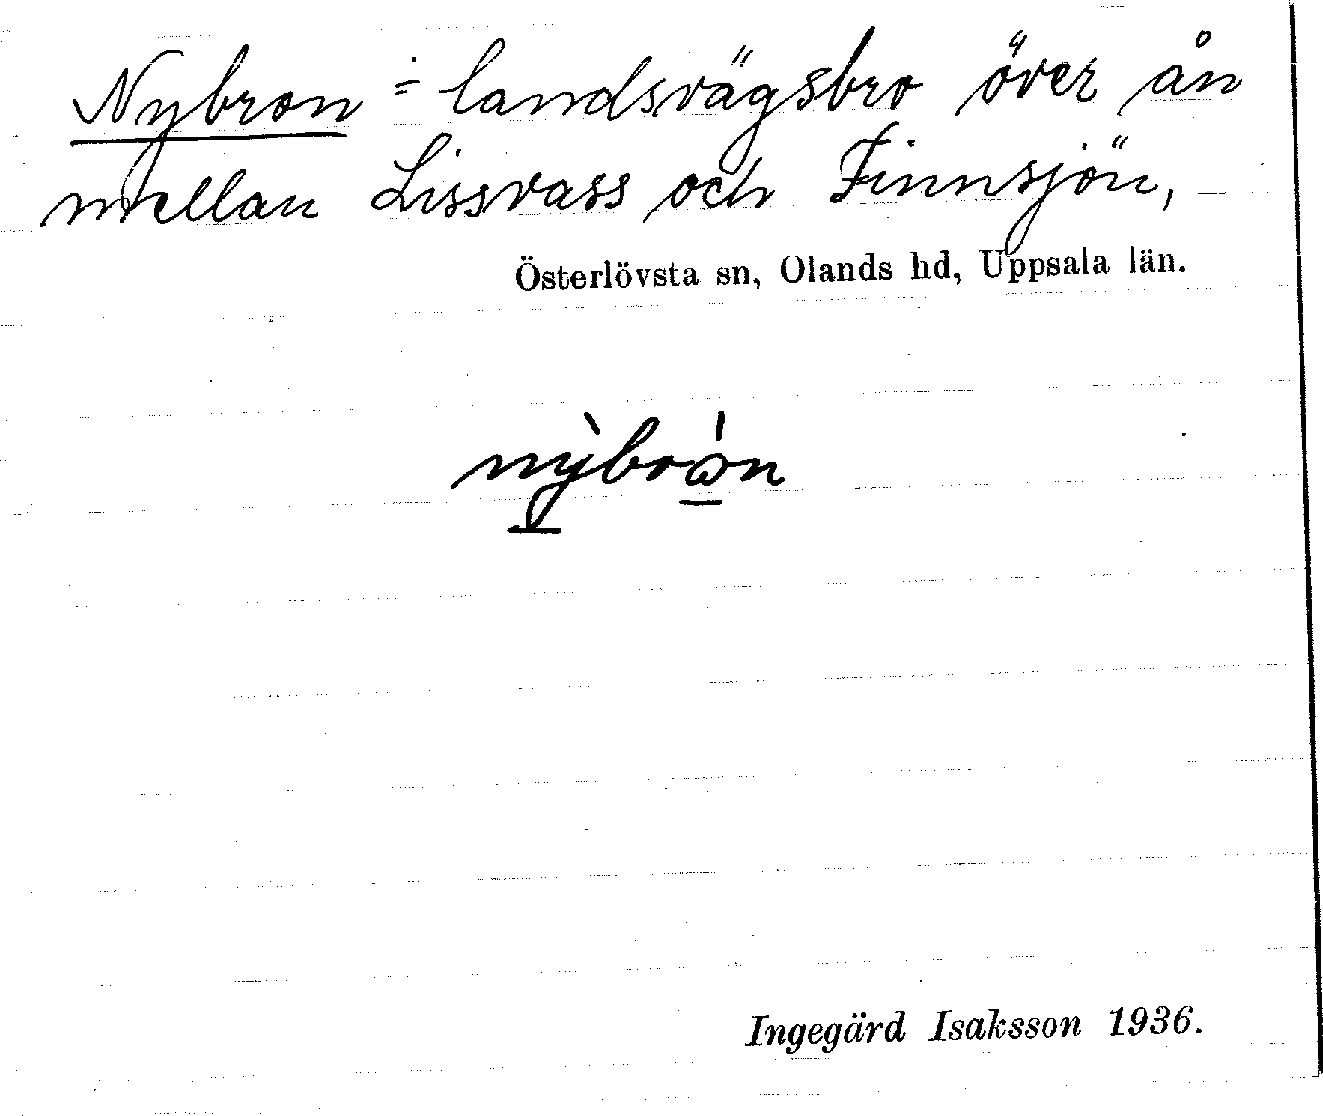 Nybron = landsvägsbro över ån
mellan Lissvass och Finnsjön,
Österlövsta sn, Olands hd, Uppsala län.
nỳbrὼn
Ingegärd Isaksson 1936.